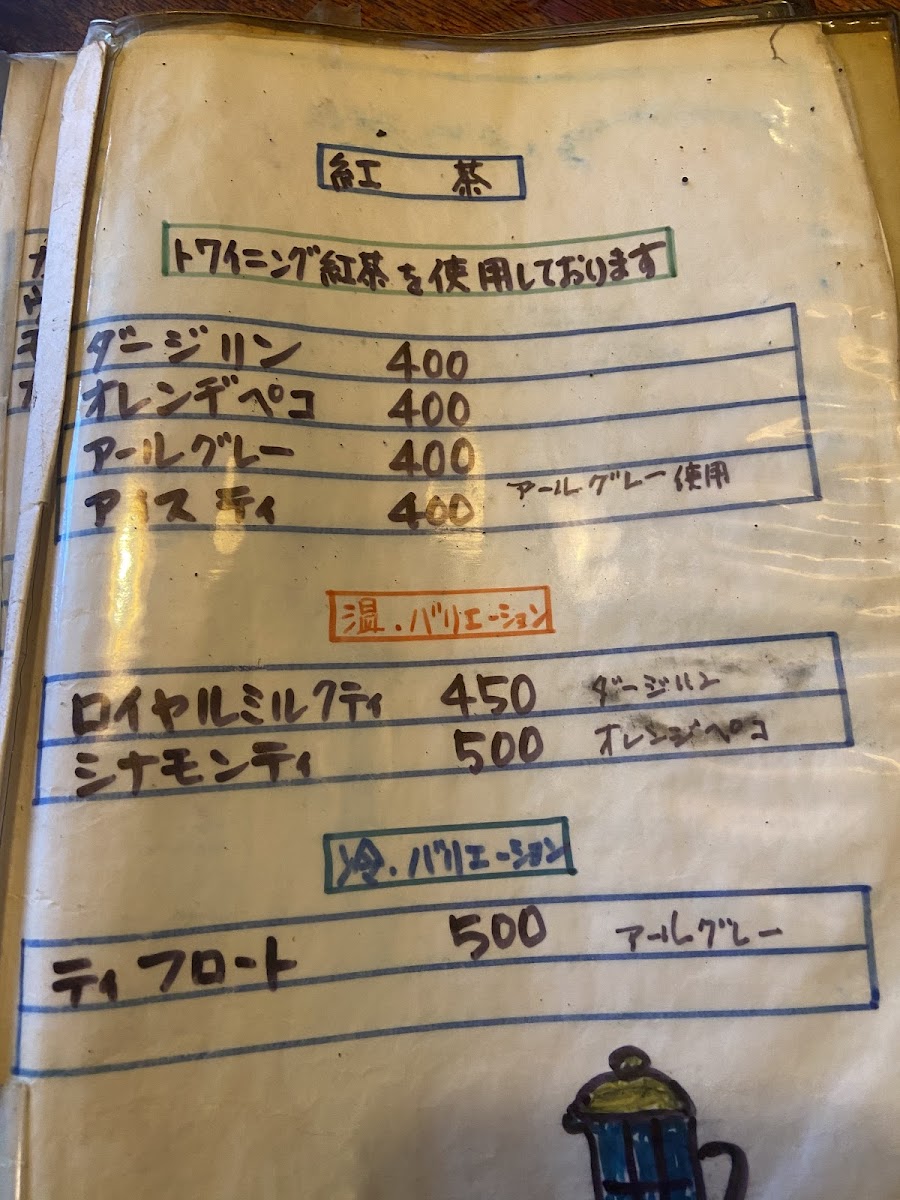 紅 茶
トワイニング紅茶を使用しております
ダージリン 400
オレンヂペコ 400
アールグレー 400
アイスティ 400 アールグレー使用
温・バリエーション
ロイヤルミルクティ 450 ダージリン
シナモンティ 500 オレンジペコ
冷・バリエーション
ティフロート 500 アールグレー